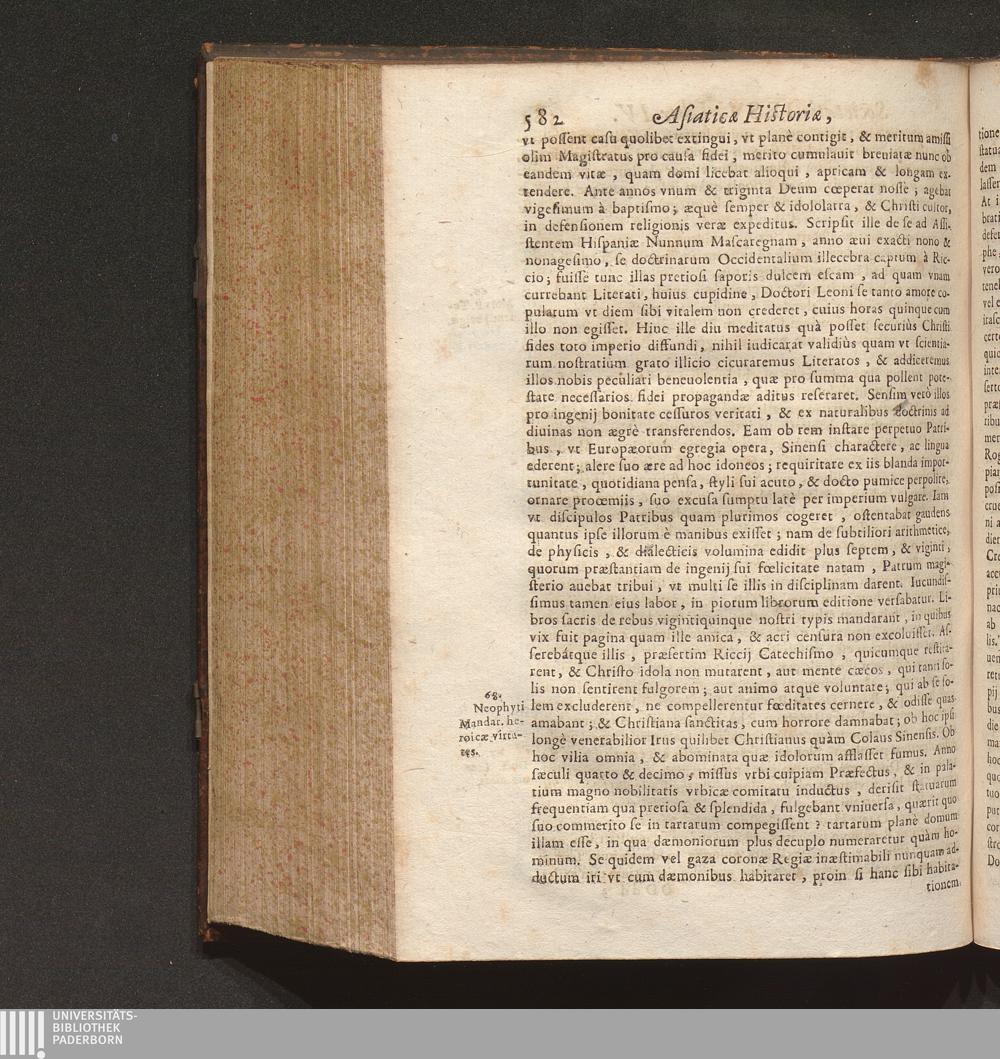 582 Asiaticæ Historiæ,
vt possent casu quolibet extingui, vt planè contigit, & meritum amissi
olim Magistratus pro causa fidei, merito cumulauit breuiatæ nunc ob
eandem vitæ, quam domi licebat alioqui, apricam & longam ex-
tendere. Ante annos vnum & triginta Deum cœperat nosse; agebat
vigesimum à baptismo; æquè semper & idololatra, & Christi cultor,
in defensionem religionis veræ expeditus. Scripsit ille de se ad Assi-
stentem Hispaniæ Nunnum Mascaregnam, anno æui exacti nono &
nonagesimo, se doctrinarum Occidentalium illecebra captum à Ric-
cio; fuisse tunc illas pretiosi saporis dulcem escam, ad quam vnam
currebant Literati, huius cupidine, Doctori Leoni se tanto amore co-
pulatum vt diem sibi vitalem non crederet, cuius horas quinque cum
illo non egisset. Hinc ille diu meditatus quà posset securiùs Christi
fides toto imperio diffundi, nihil iudicarat validiùs quam vt scientia-
rum nostratium grato illicio cicuraremus Literatos, & addiceremus
illos nobis peculiari beneuolentia, quæ pro summa qua pollent pote-
state necessarios fidei propagandæ aditus reseraret. Sensim verò illos
pro ingenij bonitate cessuros veritati, & ex naturalibus doctrinis ad
diuinas non ægrè transferendos. Eam ob rem instare perpetuo Patri-
bus, vt Europæorum egregia opera, Sinensi charactere, ac lingua
ederent; alere suo ære ad hoc idoneos; requiritare ex iis blanda impor-
tunitate, quotidiana pensa, styli sui acuto, & docto pumice perpolite,
ornare proœmiis, suo excusa sumptu latè per imperium vulgare. Iam
vt discipulos Patribus quam plurimos cogeret, ostentabat gaudens
quantus ipse illorum è manibus exisset; nam de subtiliori arithmetice,
de physicis, & dialecticis volumina edidit plus septem, & viginti,
quorum præstantiam de ingenij sui fœlicitate natam, Patrum magi-
sterio auebat tribui, vt multi se illis in disciplinam darent. Iucundis-
simus tamen eius labor, in piorum librorum editione versabatur. Li-
bros sacris de rebus vigintiquinque nostri typis mandarant, in quibus
vix fuit pagina quam ille amica, & acri censura non excoluisset. As-
serebátque illis, præsertim Riccij Catechismo, quicumque restita-
rent, & Christo idola non mutarent, aut mente cæcos, qui tanti so-
lis non sentirent fulgorem; aut animo atque voluntate; qui ab se so-
lem excluderent, ne compellerentur fœditates cernere, & odisse quas
amabant; & Christiana sanctitas, cum horrore damnabat; ob hoc ipsi
longè venerabilior Irus quilibet Christianus quàm Colaus Sinensis. Ob
hoc vilia omnia, & abominata quæ idolorum afflasset fumus. Anno
sæculi quarto & decimo, missus vrbi cuipiam Præfectus, & in pala-
tium magno nobilitatis vrbicæ comitatu inductus, derisit statuarum
frequentiam qua pretiosa & splendida, fulgebant vniuersa, quærit quo
suo commerito se in tartarum compegissent? tartarum planè domum
illam esse, in qua dæmoniorum plus decuplo numeraretur quàm ho-
minum. Se quidem vel gaza coronæ Regiæ inæstimabili nunquam ad-
ductum iri vt cum dæmonibus habitaret, proin si hanc sibi habita-
tionem
68.
Neophyti
Mandar. he-
roicæ virtu-
tes.
UNIVERSITÄTS-
BIBLIOTHEK
PADERBORN